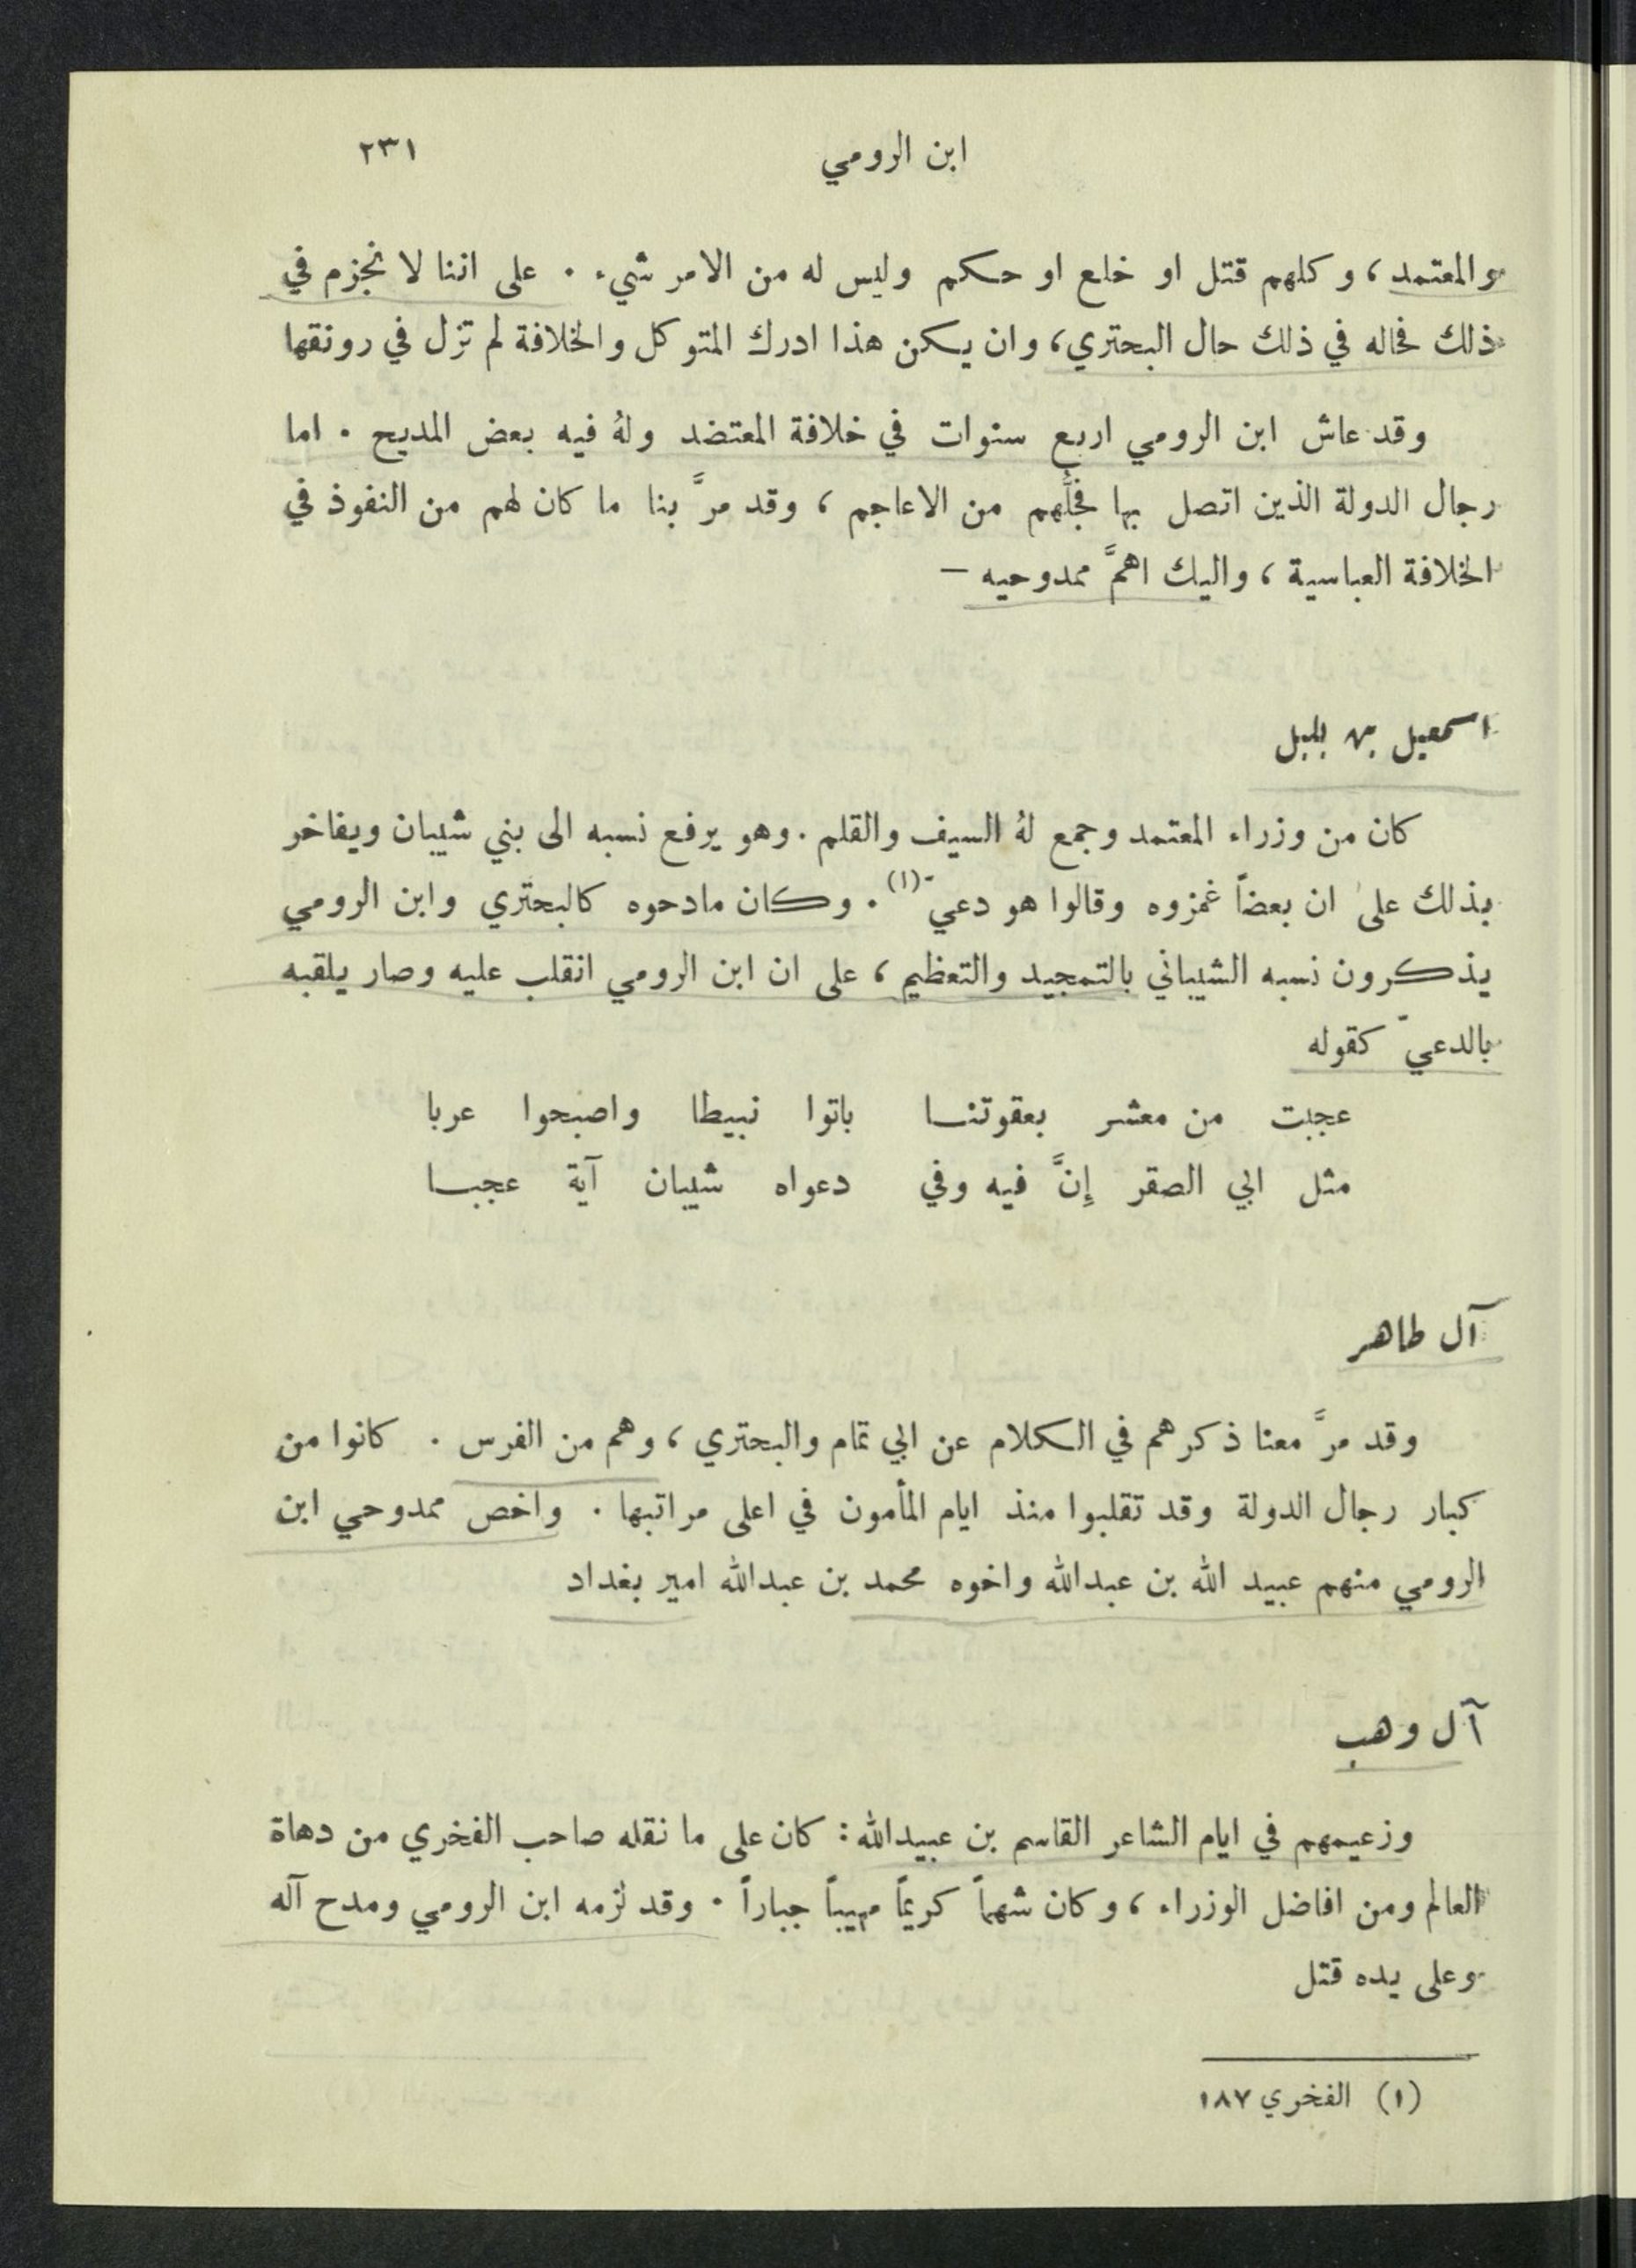 ابن الرومي ٢٣١
والمعتمد ، وكلهم قتل او خلع او حكم وليس له من الامر شيء . على اننا لا نجزم في
ذلك فحاله في ذلك حال البحتري، وان يكن هذا ادرك المتوكل والخلافة لم تزل في رونقها
وقد عاش ابن الرومي اربع سنوات في خلافة المعتضد ولهُ فيه بعض المديح . اما
رجال الدولة الذين اتصل بها فجلُّهم من الاعاجم ، وقد مرَّ بنا ما كان لهم من النفوذ في
الخلافة العباسية ، واليك اهمَّ ممدوحيه –
اسمعيل بن بلبل
كان من وزراء المعتمد وجمع لهُ السيف والقلم . وهو يرفع نسبه الى بني شيبان ويفاخر
بذلك على ان بعضاً غمزوه وقالوا هو دعي (١) . وكان مادحوه كالبحتري وابن الرومي
يذكرون نسبه الشيباني بالتمجيد والتعظيم ، على ان ابن الرومي انقلب عليه وصار يلقبه
بالدعي كقوله
عجبت من معشر بعقوتنا باتوا نبيطا واصبحوا عربا
مثل ابي الصقر إِنَّ فيه وفي دعواه شيبان آية عجبا
آل طاهر
وقد مرَّ معنا ذكرهم في الكلام عن ابي تمام والبحتري ، وهم من الفرس . كانوا من
كبار رجال الدولة وقد تقلبوا منذ ايام المأمون في اعلى مراتبها . واخص ممدوحي ابن
الرومي منهم عبيد الله بن عبدالله واخوه محمد بن عبدالله امير بغداد
آل وهب
وزعيمهم في ايام الشاعر القاسم بن عبيدالله : كان على ما نقله صاحب الفخري من دهاة
العالم ومن افاضل الوزراء ، وكان شهماً كريماً مهيباً جباراً . وقد لزمه ابن الرومي ومدح آله
وعلى يده قتل
(١) الفخري ١٨٧